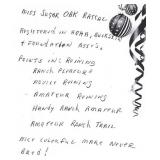 Miss Sugar Oak Rassul
Registered in ABRA, Buckskin
+ Foundation Ass'ns.
Points in: Reining
Ranch Pleasure
Novice Reining
- Amateur Reining
Handy Ranch Amateur
Amateur Ranch Trail
Nice Colorful Mare Never
Bred!